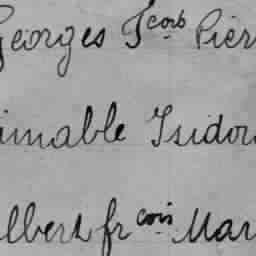 Georges Jcob Pier
imable Isidor
lbert frcois Mar